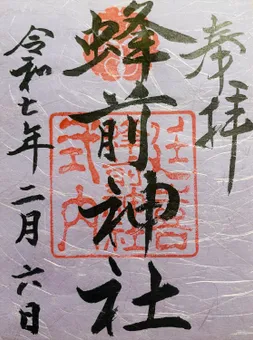 奉拝
蜂前神社
令和七年二月六日